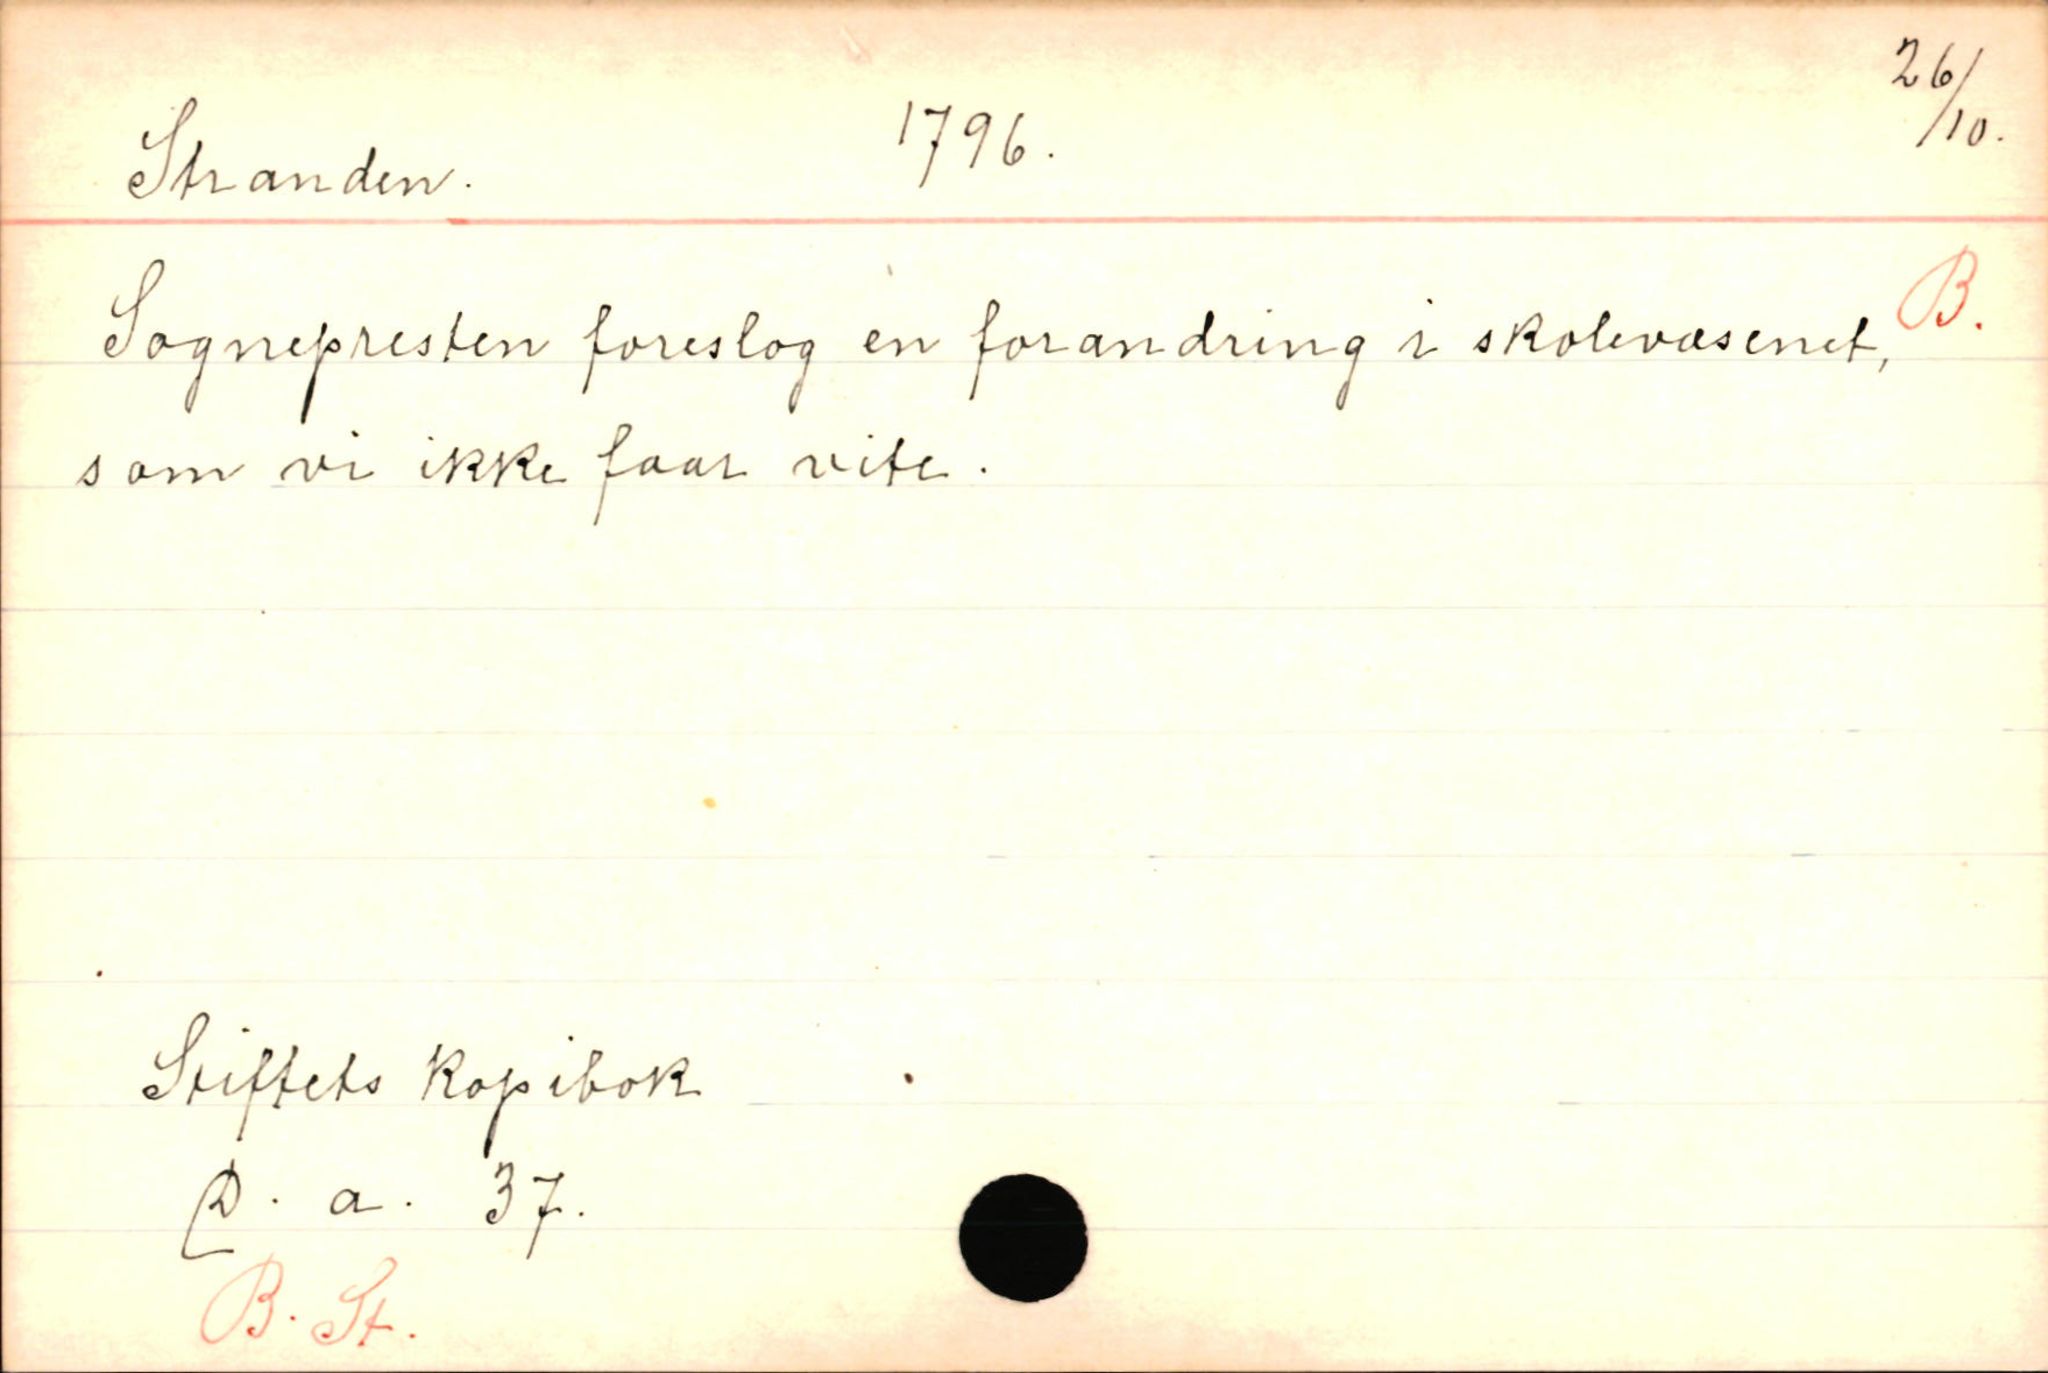 Stranden. 1796. 26/10.
B.
Sognepresten foreslog en forandring i skolevæsenet,
som vi ikke faar vite.
Stiftets kopibok
D. a. 37.
B. St.